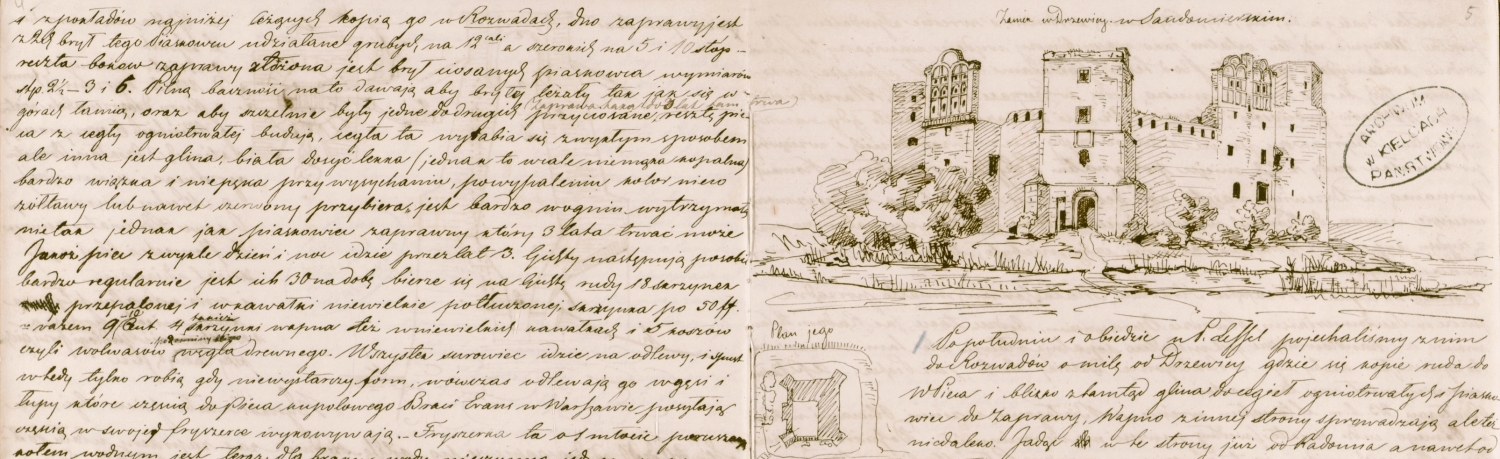 i z pokładów najniżej leżących kopią go w Rozwadach, dno zaprawy jest
z 2ch brył tego Piaskowcu udziałane grubych na 12 cali a szerokich na 5 i 10 stóp
reszta boków zaprawy złożona jest brył ciosanych piaskowca wymiarów
stp. 2½ – 3 i 6. Pilną baczność na to dawają aby bryły leżały tak jak się w
górach łamią, oraz aby szczelnie były jedne do drugich przyciosane, resztę pie
(zaprawa taka do 3 lat trwa)
ca z cegły ogniotrwałej budują, cegła ta wyrabia się zwykłym sposobem
ale inna jest glina, biała dosyć lekka (jednak to wcale nie mąka kopalna)
bardzo wiązka i nie pęka przy wysychaniu, po wypaleniu kolor nieco
żółtawy lub nawet czerwony przybiera, jest bardzo w ogniu wytrzymała
nie tak jednak jak piaskowiec zaprawny który 3 lata trwać może
piec zwykle dzień i noc idzie przez lat 3. Gichty następują po sobie
bardzo regularnie jest ich 30 na dobę bierze się na Gichtę rudy 18 skrzynek
przepalonej i w kawałki niewielkie potłuczonej, skrzynka po 50 ff.
= razem 9 Cent 4 skrzynki wapna też w niewielkich kawałkach i 5 koszów
czyli wolwasów węgla drewnego. Wszystek surowiec idzie na odlewy, i spust
wtedy tylko robią gdy niewystarczy form, wówczas odlewają go w gęsi i
łupy które częścią do Pieca kupolowego Braci Evans w Warszawie posyłają
częścią w swojej fryszerce wykowywają. – Fryszerka ta o 1 młocie poruszanym
kołem wodnym jest teraz dla braku wody nieczynną
5
Zamek w Drzewicy w Sandomierskim.
ARCHIWUM
W KIELCACH
PAŃSTWOWE
Plan jego
Po południu i obiedzie u P. Leffel pojechaliśmy z nim
do Rozwadów o milę od Drzewicy gdzie się kopie ruda do
W Pieca i blisko ztamtąd glina do cegieł ogniotrwałych i piasko-
wiec do zaprawy, Wapno z innej strony sprowadzają ale też
niedaleko. Jadąc w te strony już od Radomia a nawet od